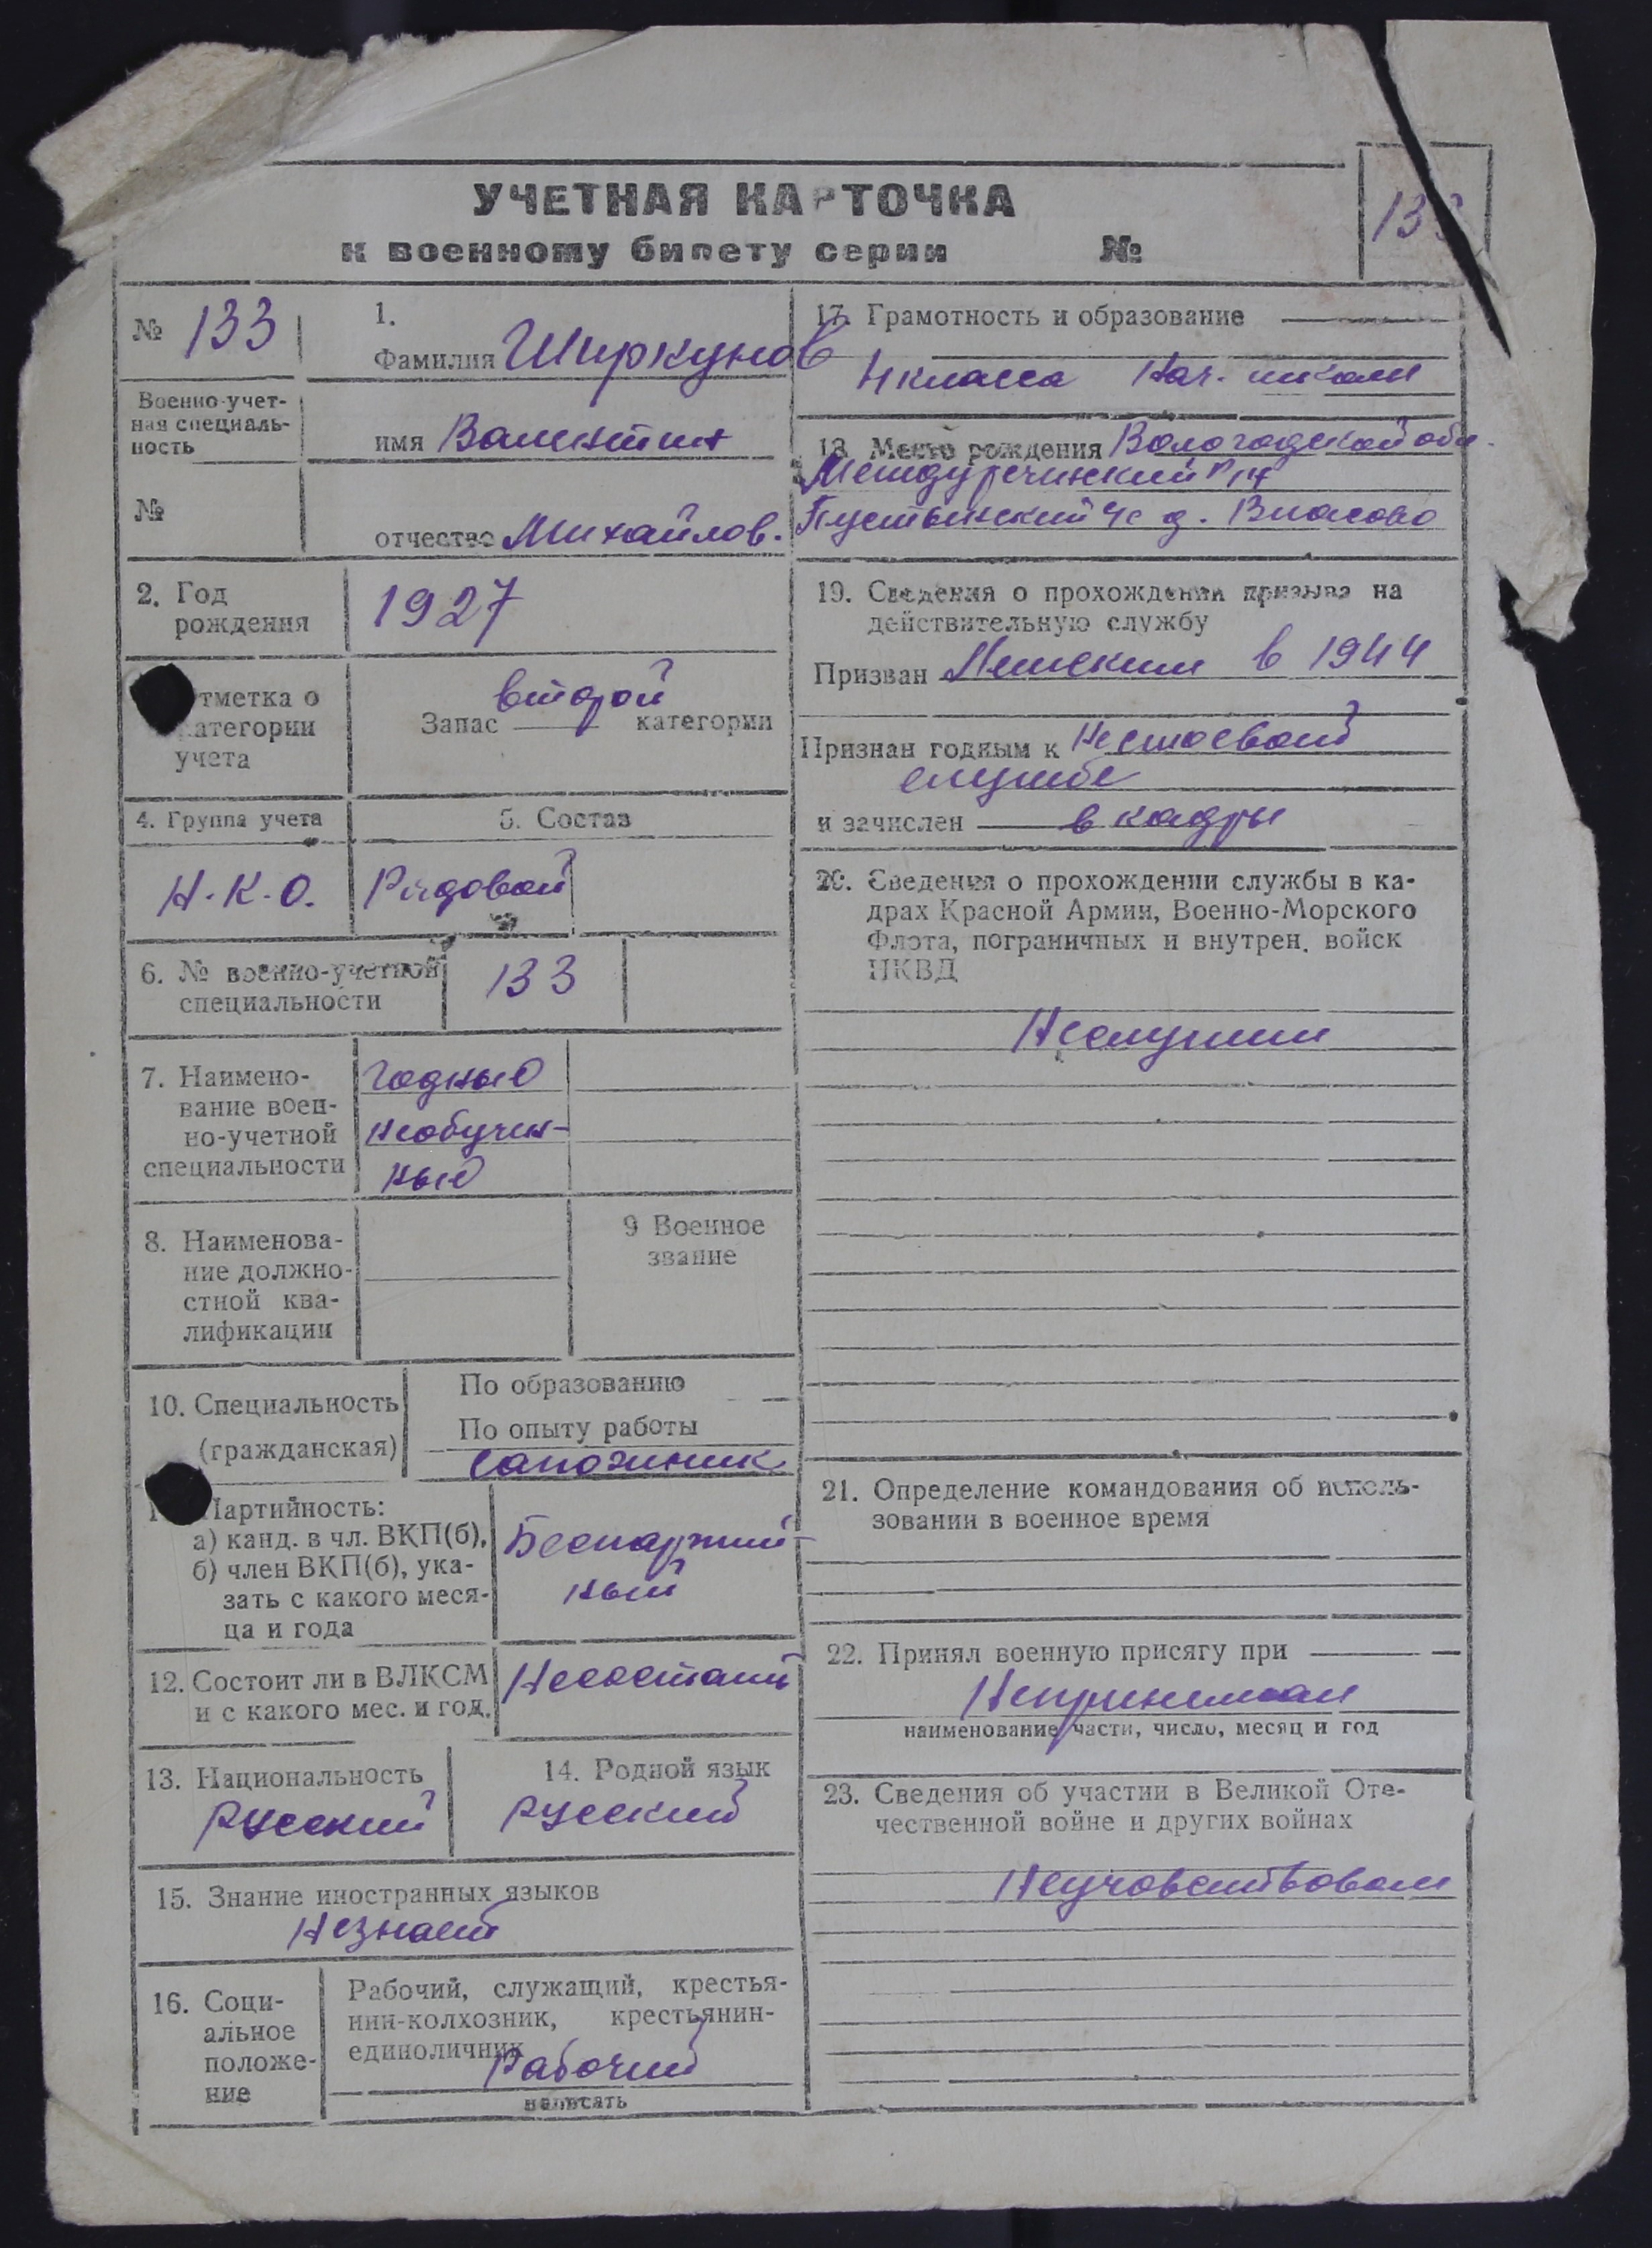 УЧЕТНАЯ КАРТОЧКА
к военному билету серии №
133
№ 133
Военно-учет-
ная специаль-
ность
№
1.
Фамилия Ширкунов
имя Валентин
отчество Михайлов.
2. Год
рождения
1927
отметка о
категории
учета
Запас второй категории
4. Группа учета
Н.К.О.
5. Состав
Рядовой
6. № военно-учетной
специальности
133
7. Наимено-
вание воен-
но-учетной
специальности
годный
необучен-
ный
8. Наименова-
ние должно-
стной ква-
лификации
9 Военное
звание
10. Специальность
(гражданская)
По образованию
По опыту работы
сапожник
Партийность:
а) канд. в чл. ВКП(б),
б) член ВКП(б), ука-
зать с какого меся-
ца и года
Беспартий-
ный
12. Состоит ли в ВЛКСМ
и с какого мес. и год.
Несостоит
13. Национальность
Русский
14. Родной язык
Русский
15. Знание иностранных языков
Незнает
16. Соци-
альное
положе-
ние
Рабочий, служащий, крестья-
нин-колхозник, крестьянин-
единоличник
Рабочий
написать
17. Грамотность и образование
4 класса Нач. школы
18. Место рождения Вологодской обл.
Междуреченский р-н
Пустынский с/с д. Власово
19. Сведения о прохождении призыва на
действительную службу
Призван в 1944
Признан годным к Нестроевой
службе
и зачислен в кадры
20. Сведения о прохождении службы в ка-
драх Красной Армии, Военно-Морского
Флота, пограничных и внутрен. войск
НКВД
Неслужил
21. Определение командования об исполь-
зовании в военное время
22. Принял военную присягу при
Непринимал
наименование части, число, месяц и год
23. Сведения об участии в Великой Оте-
чественной войне и других войнах
Неучавствовал